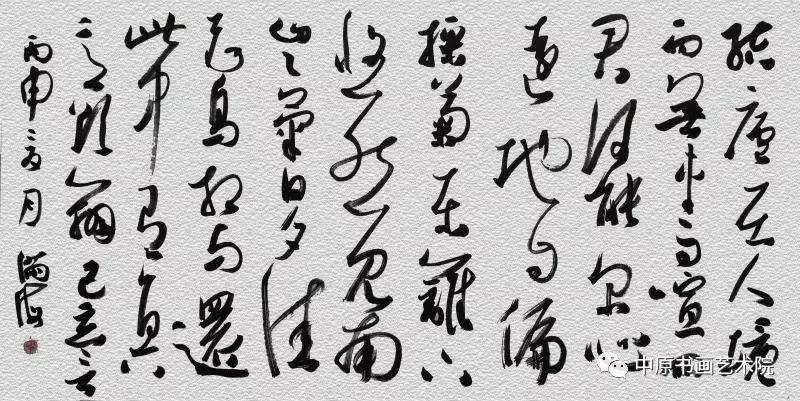 結廬在人境
而無車馬喧問
君何能尔心
遠地自偏
採菊東籬下
悠然見南
山々氣日夕佳
飛鳥相与還
此中有真
意欲辨已忘言
丙申 月
中原书画艺术院